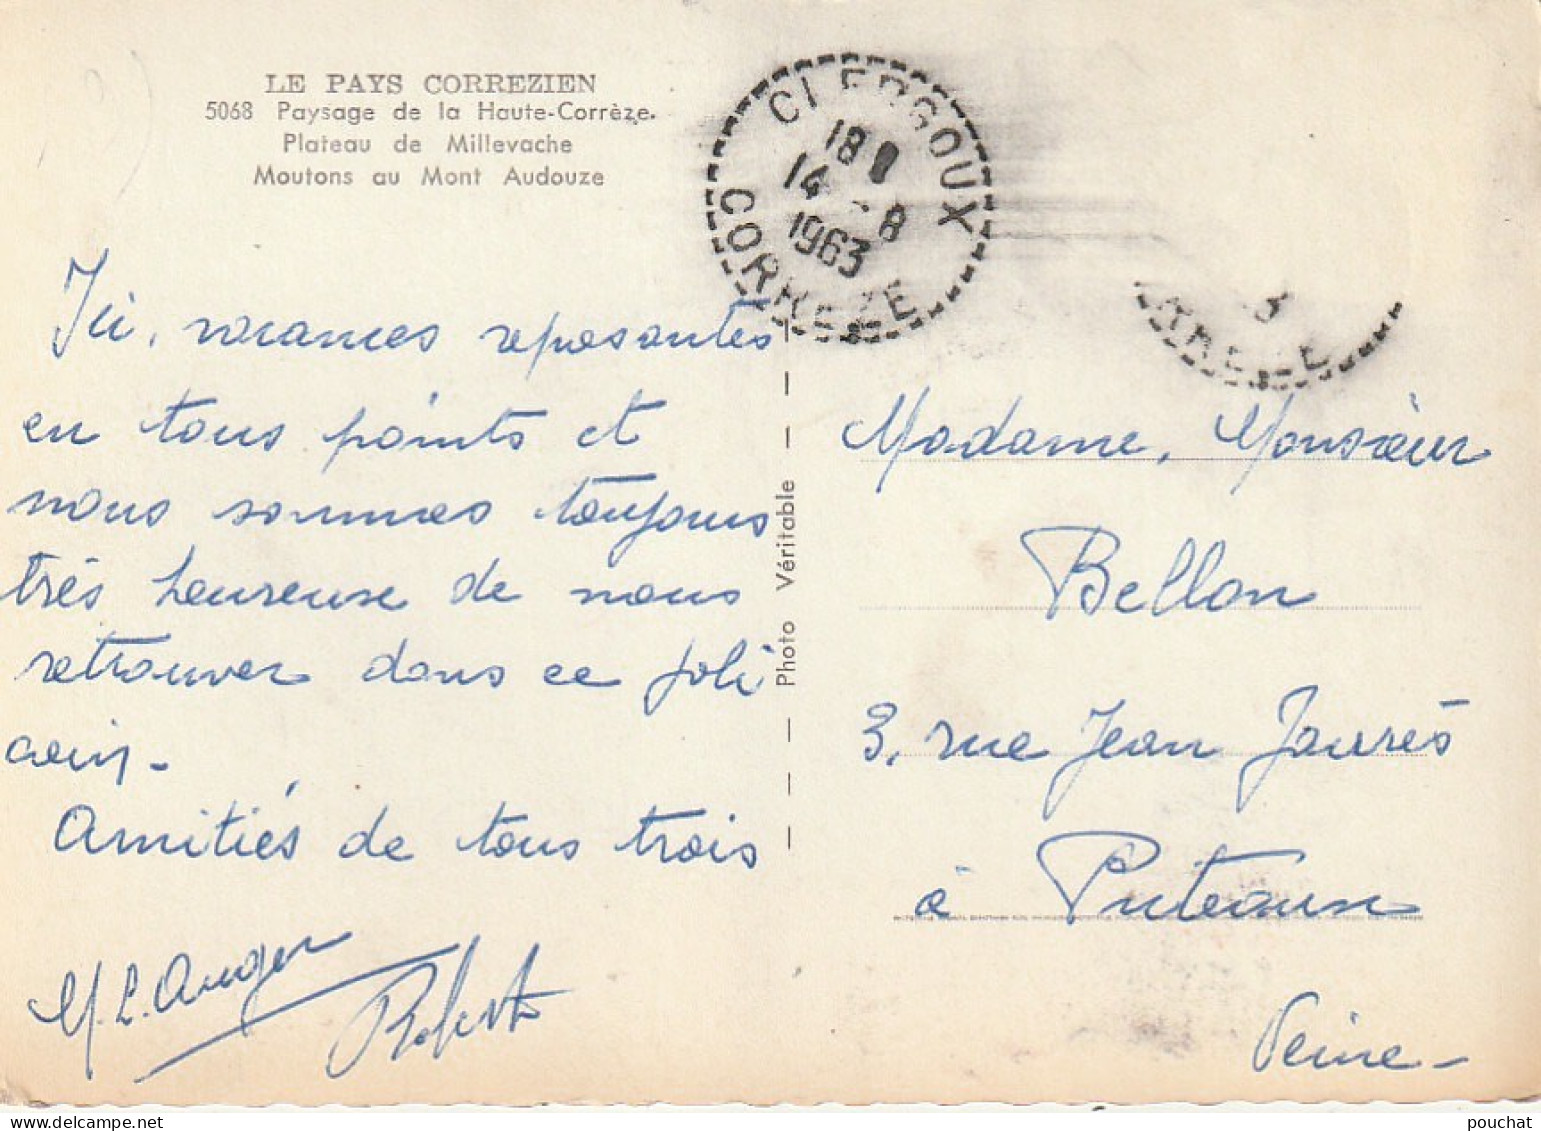 LE PAYS CORREZIEN
5068 Paysage de la Haute-Corrèze.
Plateau de Millevache
Moutons au Mont Audouze
CLERGOUX
18
14 - 8
1963
CORREZE
Ici, vacances reposantes
en tous points et
nous sommes toujours
très heureuse de nous
retrouver dans ce joli
coin.
Amitiés de tous trois
M. L. Auger
Photo Véritable
Madame, Monsieur
Bellon
3, rue Jean Jaurès
à Puteaux
Seine
pouchat